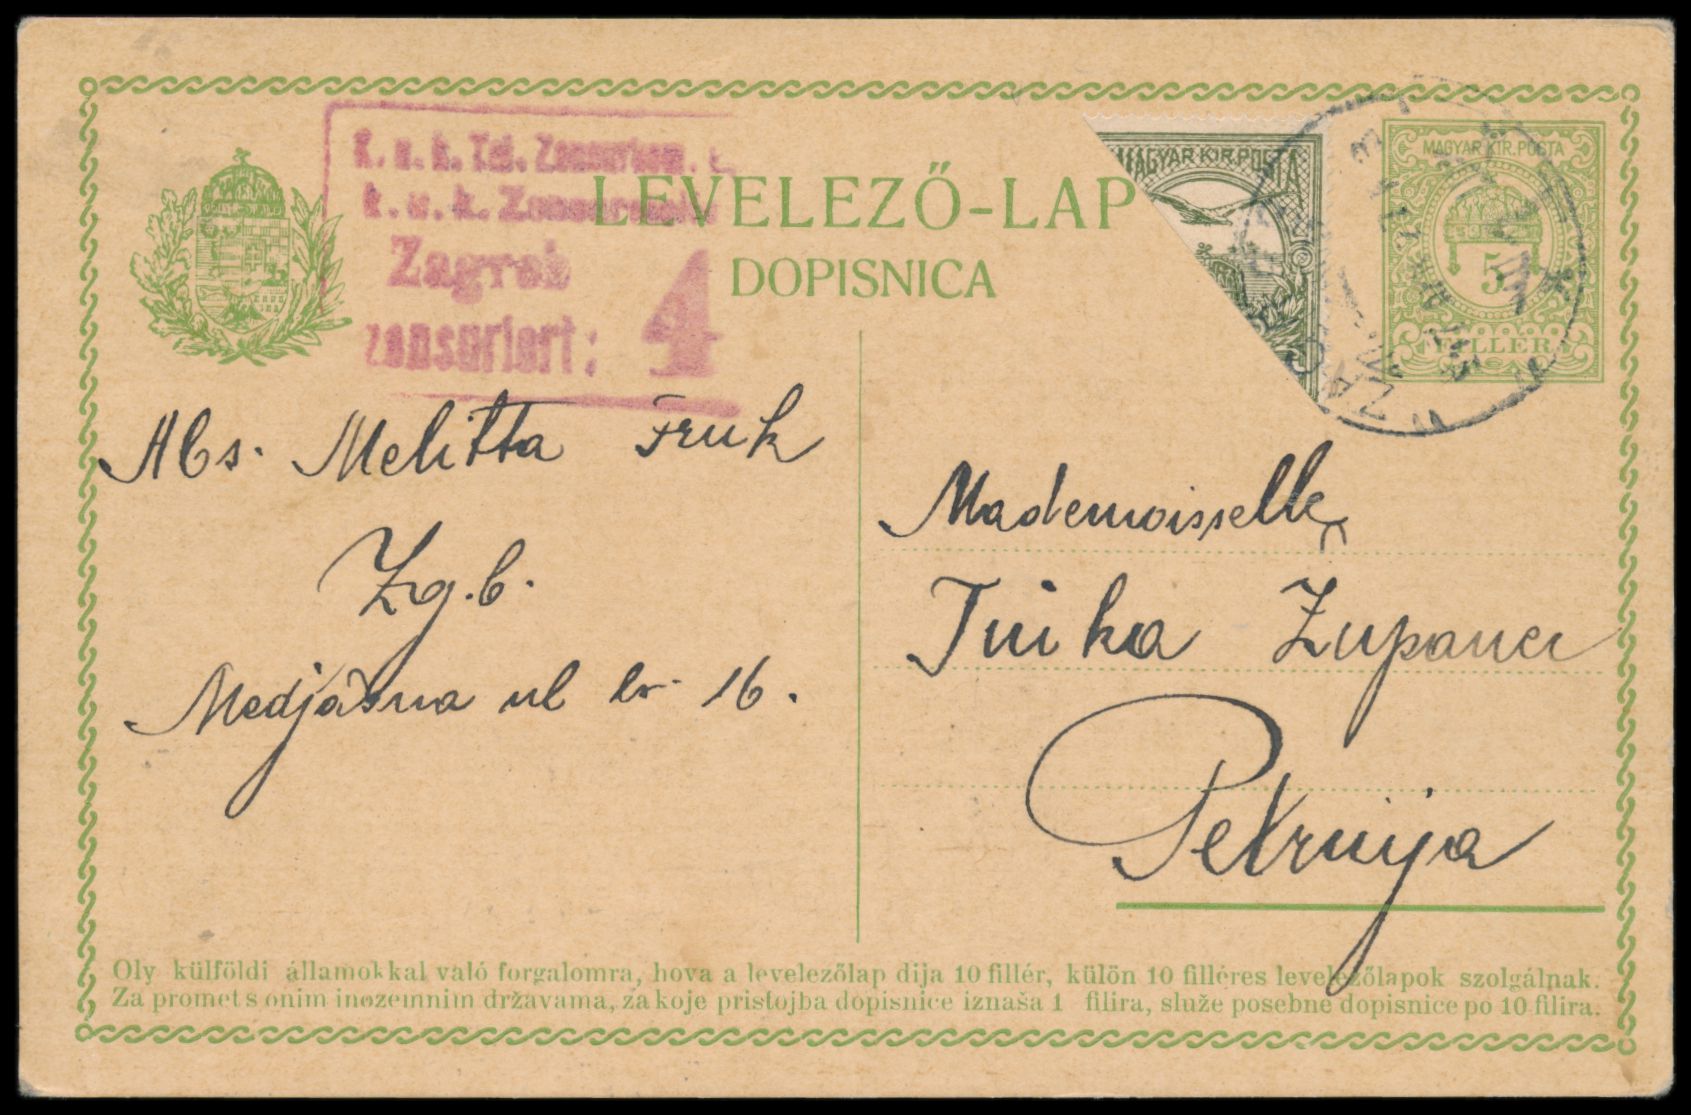 K. u. k. Tel. Zensurkom.
k. u. k. Zensurstelle
Zagreb
zensuriert: 4
LEVELEZŐ-LAP
DOPISNICA
MAGYAR KIR. POSTA
MAGYAR KIR. POSTA
5
FILLÉR
ZAG
Abs. Melitta Fruk
Zgb.
Medjašna ul br. 16.
Mademoisselle
Inika Zupanec
Petrinja
Oly külföldi államokkal való forgalomra, hova a levelezőlap dija 10 fillér, külön 10 filléres levelezőlapok szolgálnak.
Za promet s onim inozemnim državama, za koje pristojba dopisnice iznaša 1 filira, služe posebne dopisnice po 10 filira.